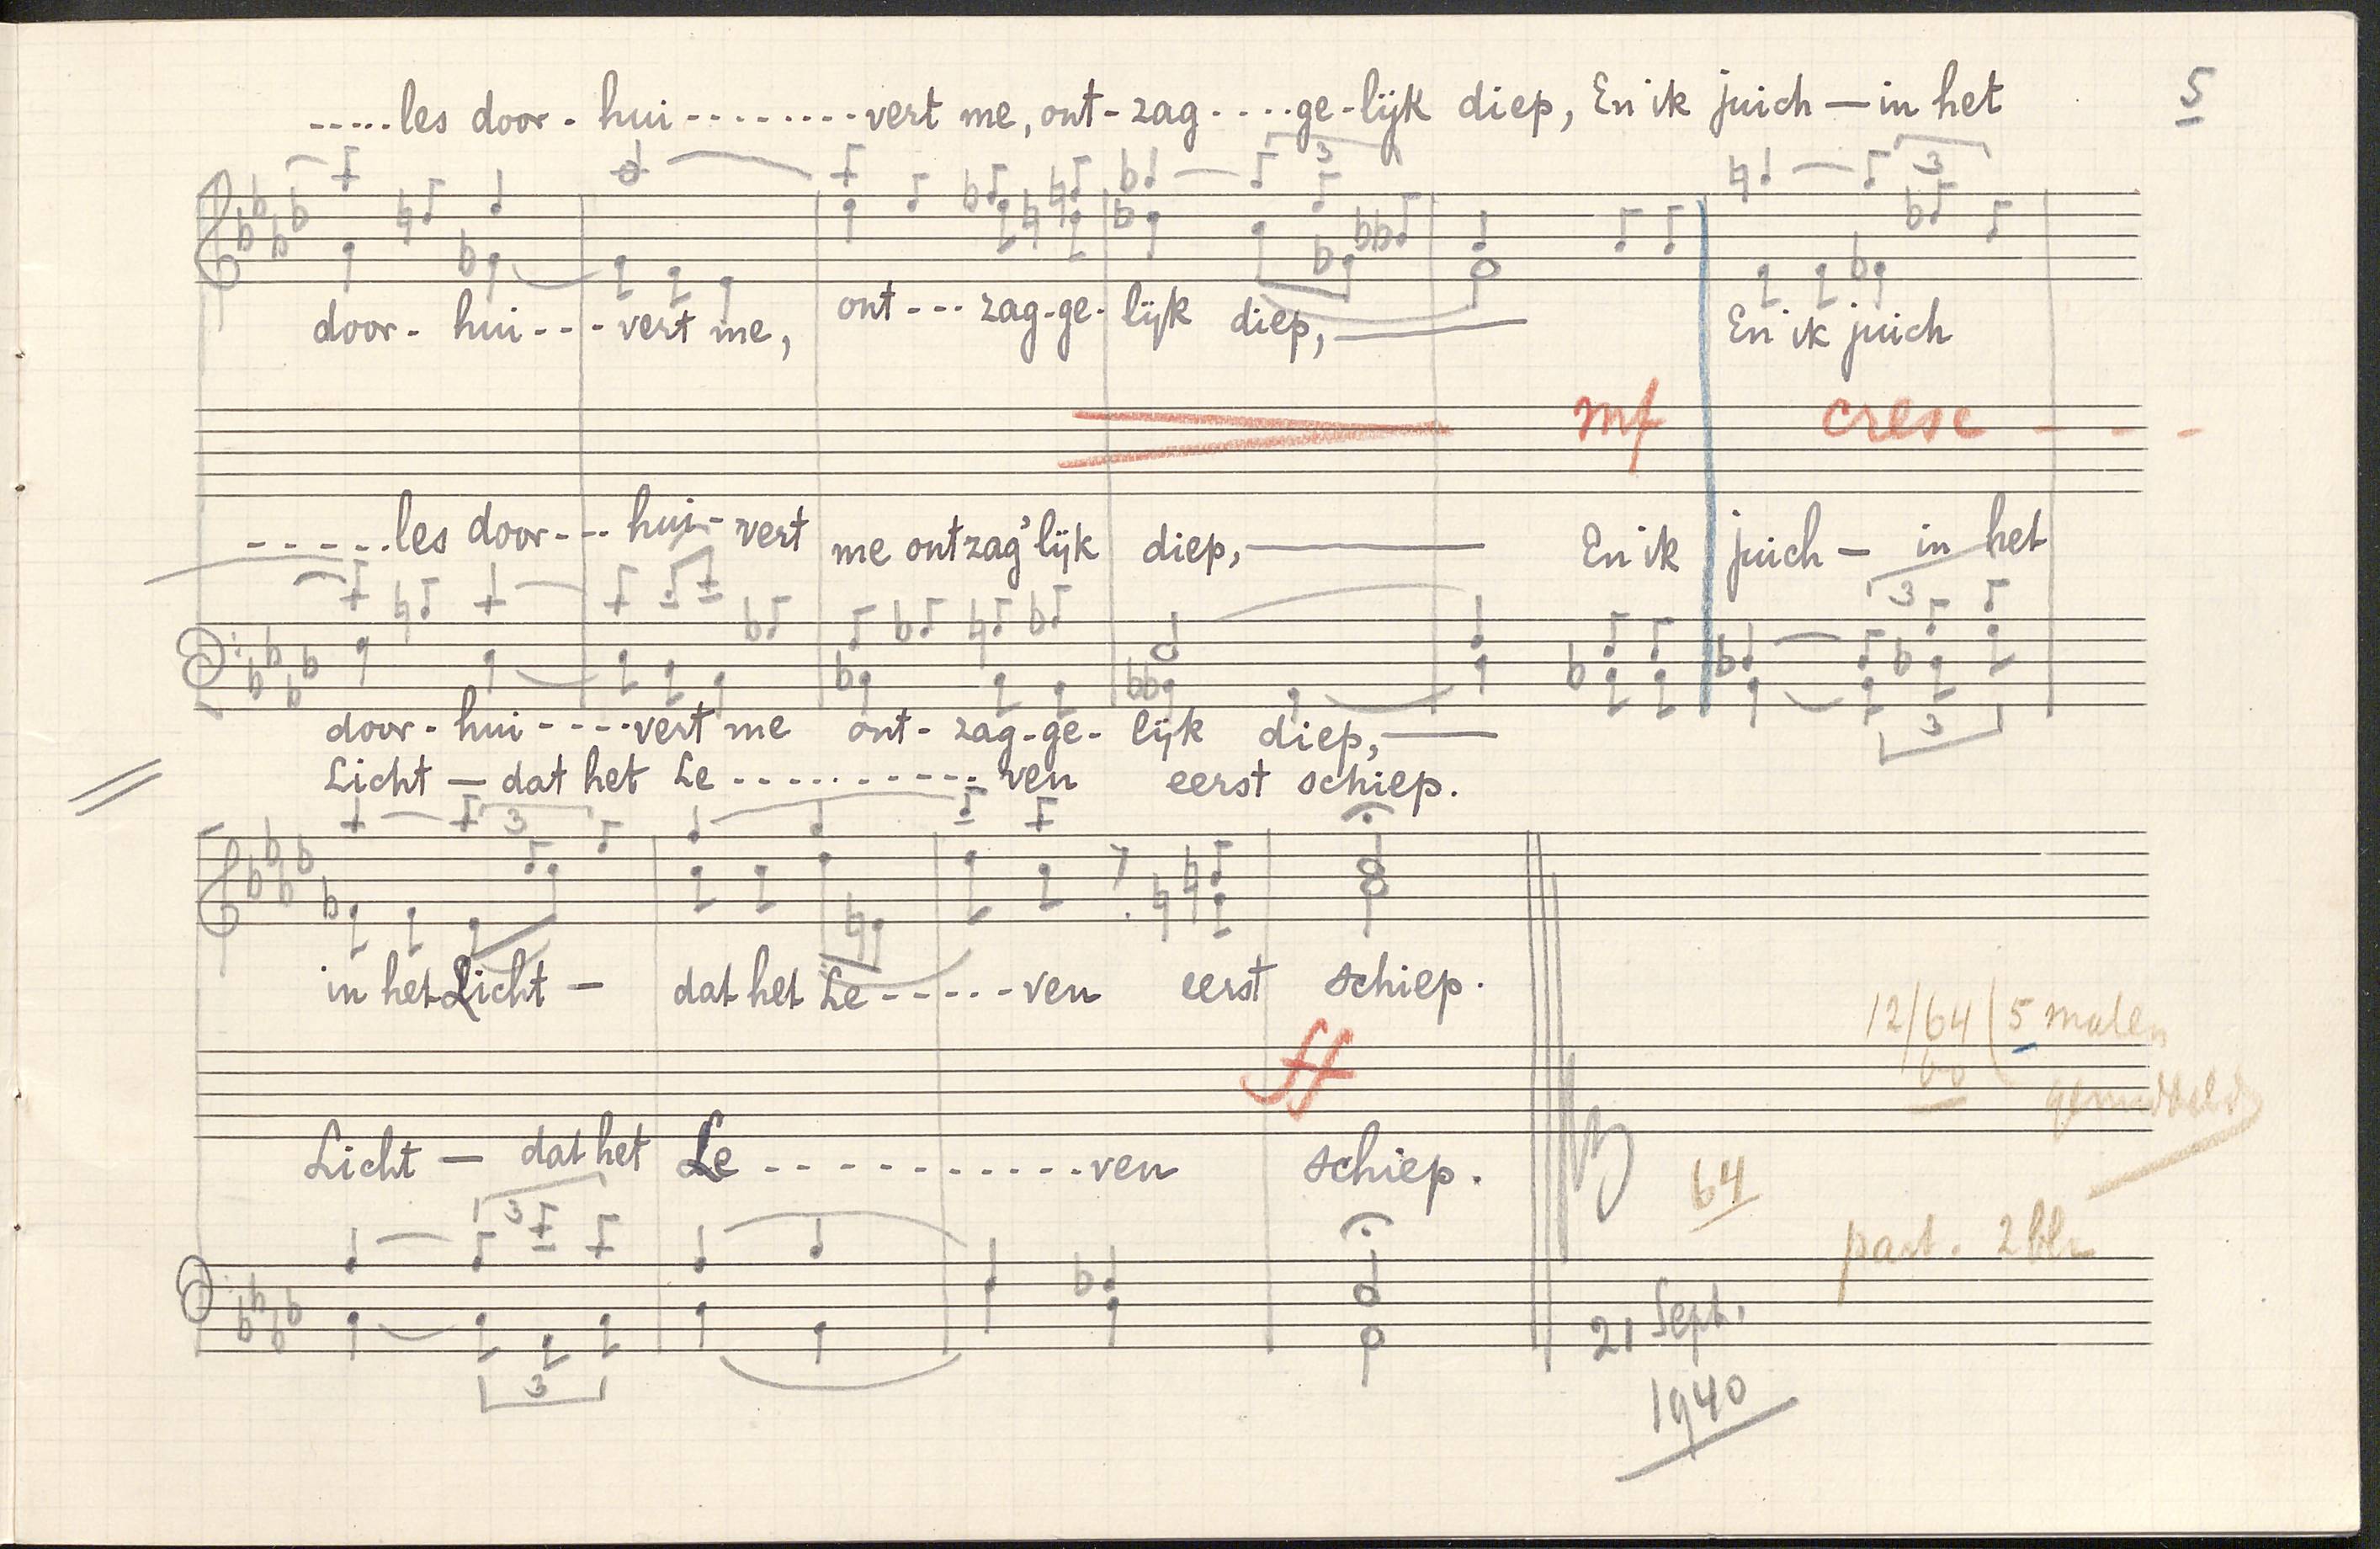 .....les door - hui ---------vert me, ont-zag....ge-lijk diep, En ik juich — in het
5
3
3
door - hui --- vert me, ont --- zag-ge- lijk diep, — En ik juich
mf cresc - - -
-----.les door --- hui - vert me ontzag'lijk diep, — En ik juich — in het
3
3
door - hui ---- vert me ont - zag-ge- lijk diep, —
Licht — dat het Le ----------- ven eerst schiep.
3
in het Licht — dat het Le -----ven eerst schiep.
12/64 ( 5 maten
60
gemiddeld
ff
Licht — dat het Le ------------ven schiep.
64
3
part. 2 blz
21 Sept.
3
1940